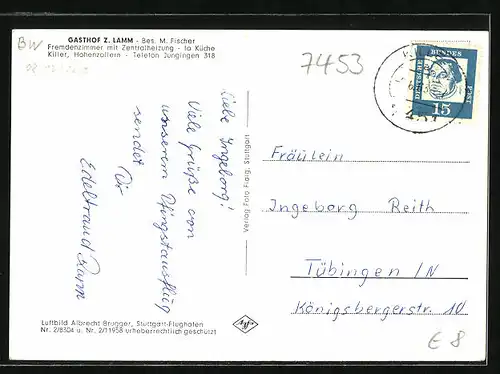 GASTHOF Z. LAMM - Bes. M. Fischer
Fremdenzimmer mit Zentralheizung - Ia Küche
Killer, Hohenzollern - Telefon Jungingen 318
BW
7453
DEUTSCHE BUNDESPOST
15
Liebe Ingeborg!
Viele Grüße von
unserem Pfingstausflug
sendet Dir
Edeltraud
Verlag Foto Franz, Stuttgart
Fräulein
Ingeborg Reith
Tübingen/N
Königsbergerstr. 10
Luftbild Albrecht Brugger, Stuttgart-Flughafen
Nr. 2/8304 u. Nr. 2/11958 urheberrechtlich geschützt
€ 8